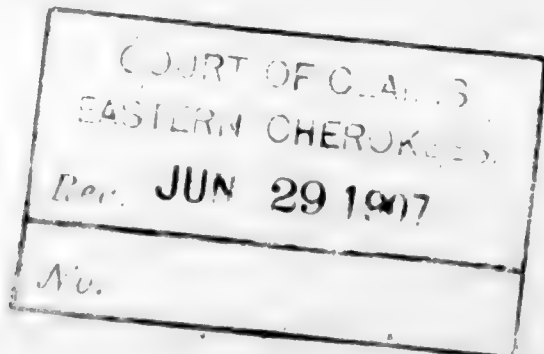 COURT OF CLAIMS
EASTERN CHEROKEES.
Rec. JUN 29 1907
No.